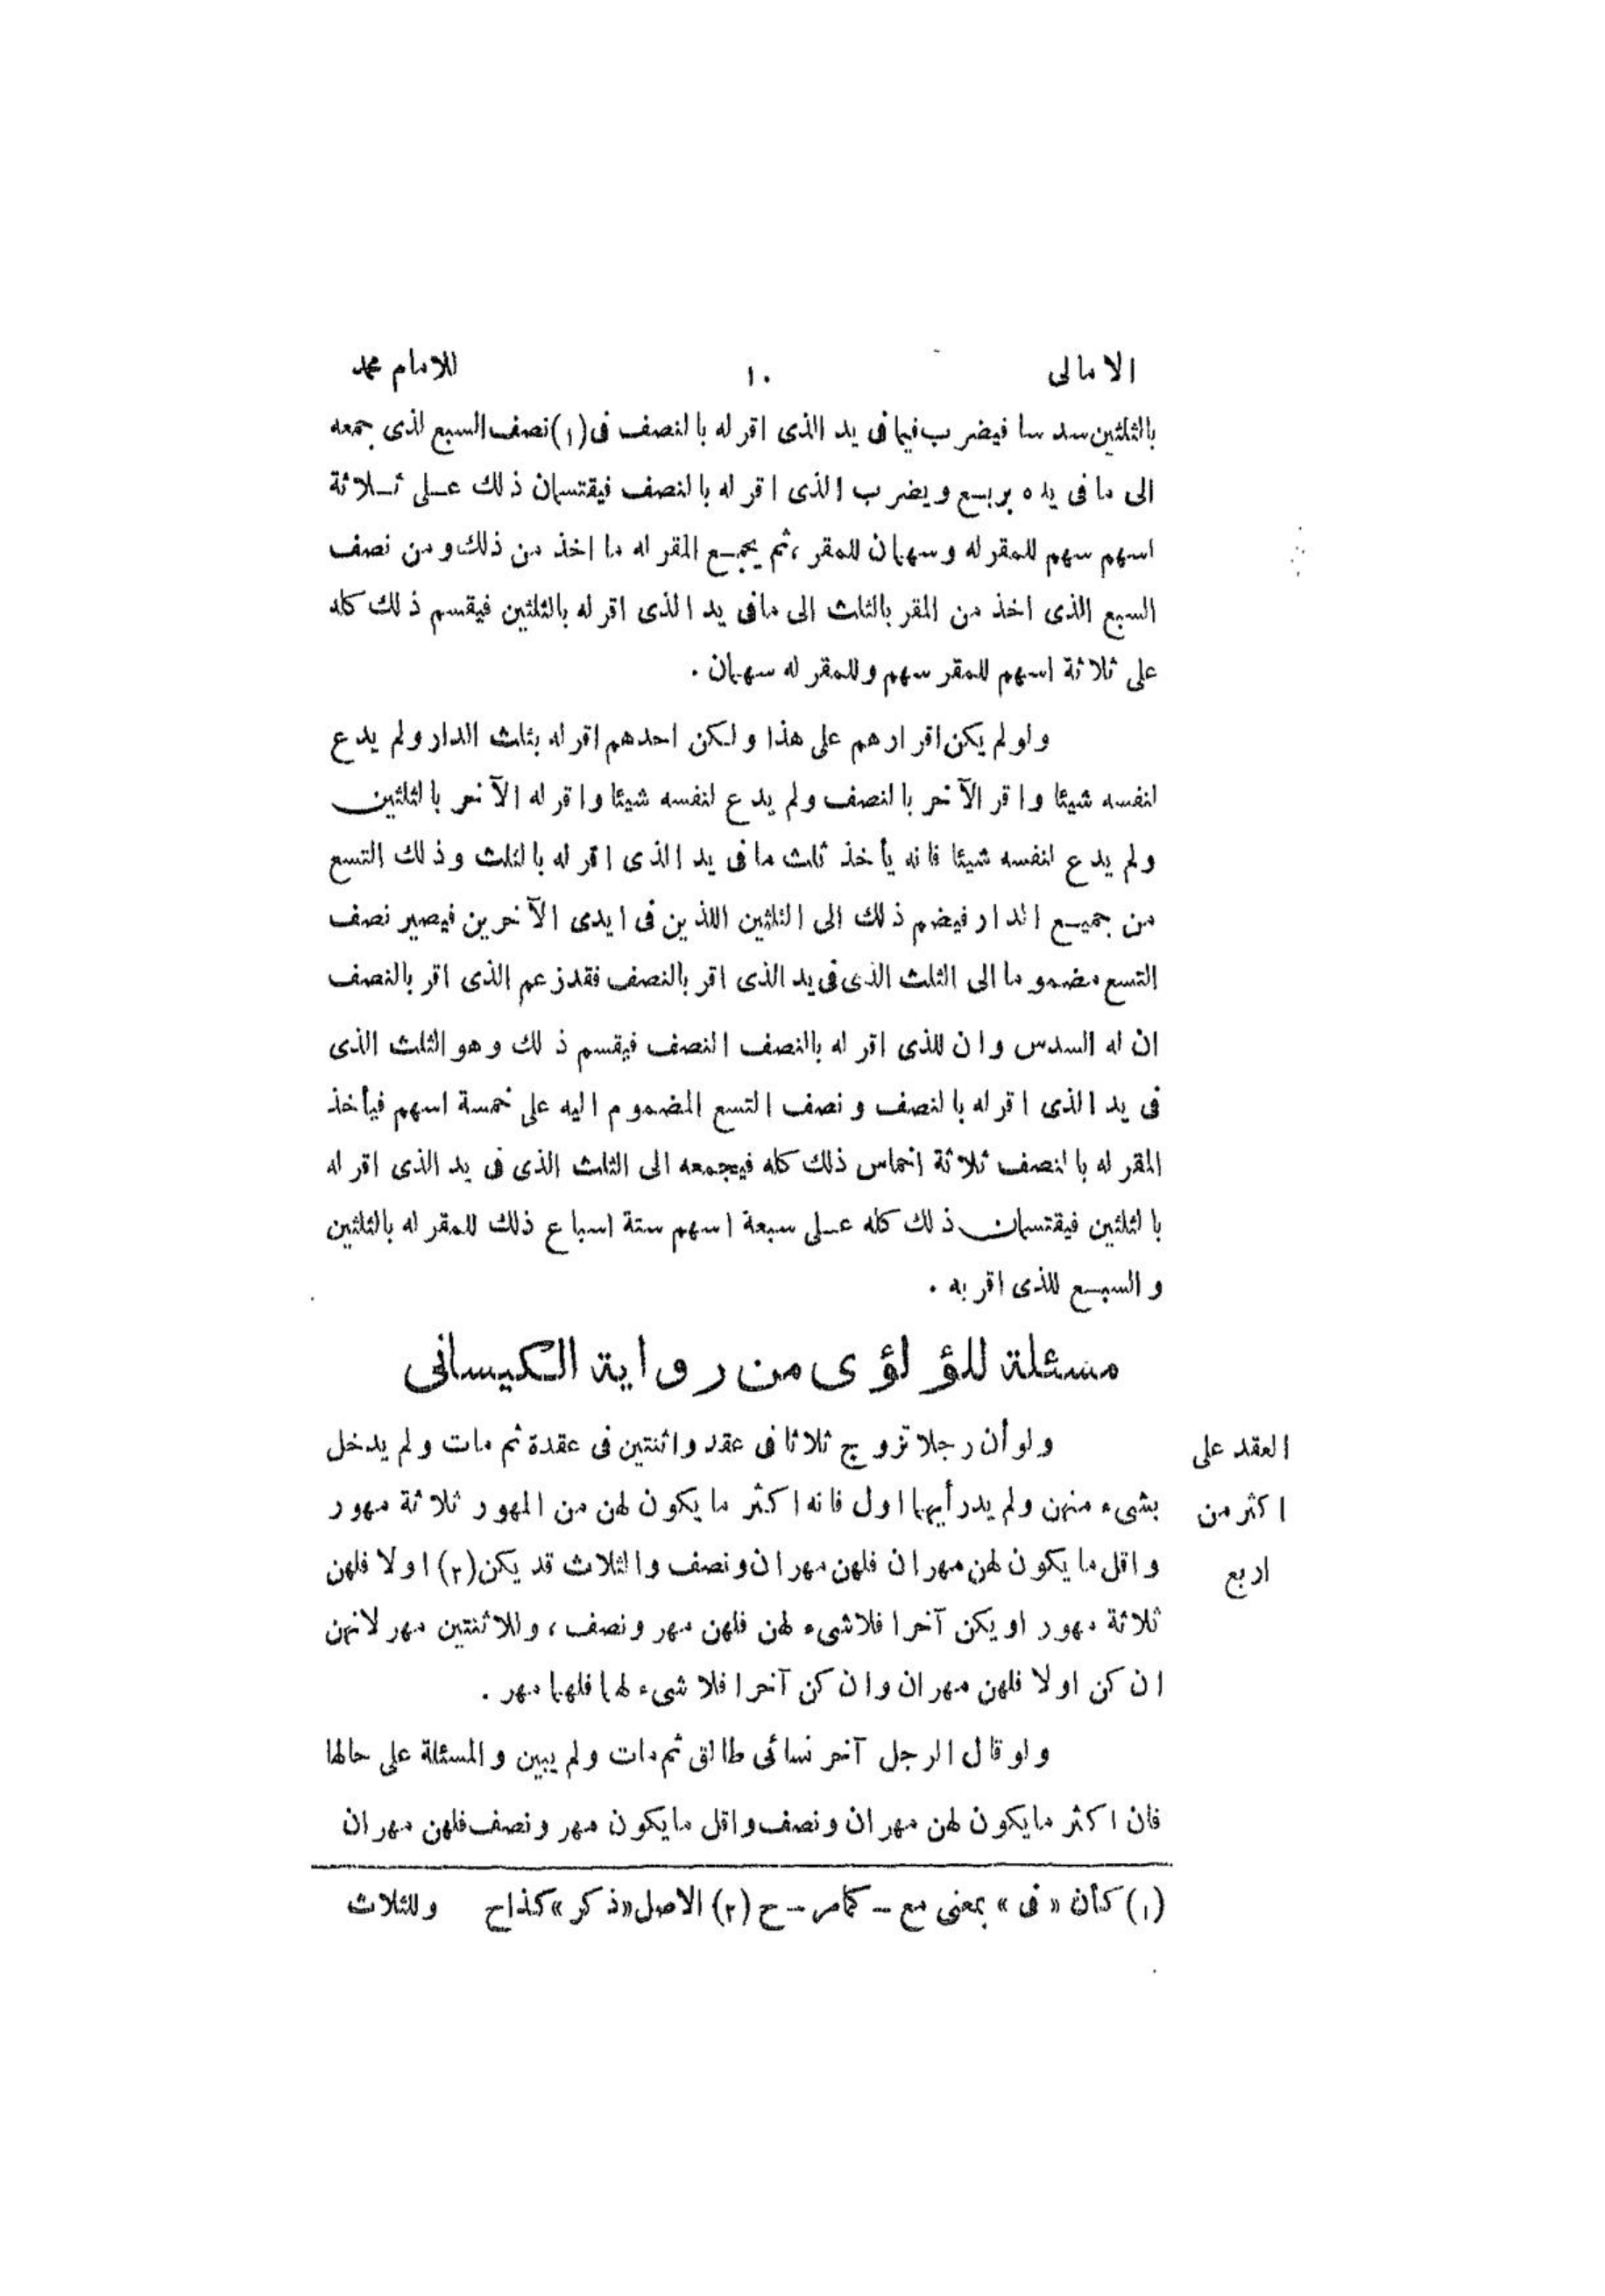 الامالى ١٠ للامام محمد
بالثلثين سدسا فيضرب فيما فى يد الذى اقر له بالنصف فى (١) نصف السبع لذى جمعه
الى ما فى يده بربع ويضرب الذى اقر له بالنصف فيقتسمان ذلك على ثلاثة
اسهم سهم للمقر له وسهمان للمقر ، ثم يجمع المقر له ما اخذ من ذلك ومن نصف
السبع الذى اخذ من المقر بالثلث الى مافى يد الذى اقر له بالثلثين فيقسم ذلك كله
على ثلاثة اسهم للمقر سهم وللمقر له سهمان .
ولو لم يكن اقرارهم على هذا ولكن احدهم اقر له بثلث الدار ولم يدع
لنفسه شيئا واقر الآخر بالنصف ولم يدع لنفسه شيئا واقر له الآخر بالثلثين
ولم يدع لنفسه شيئا فانه يأخذ ثلث ما فى يد الذى اقر له بالثلث وذلك التسع
من جميع الدار فيضم ذلك الى الثلثين اللذين فى ايدى الآخرين فيصير نصف
التسع مضموما الى الثلث الذى فى يد الذى اقر بالنصف فقد زعم الذى اقر بالنصف
ان له السدس وان للذى اقر له بالنصف النصف فيقسم ذلك وهو الثلث الذى
فى يد الذى اقر له بالنصف ونصف التسع المضموم اليه على خمسة اسهم فيأخذ
المقر له بالنصف ثلاثة اخماس ذلك كله فيجمعه الى الثلث الذى فى يد الذى اقر له
بالثلثين فيقتسمان ذلك كله على سبعة اسهم ستة اسباع ذلك للمقر له بالثلثين
والسبع للذى اقر به .
مسئلة للؤلؤى من رواية الكيسانى
العقد على اكثر من اربع
ولو أن رجلا تزوج ثلاثا فى عقد واثنتين فى عقدة ثم مات ولم يدخل
بشىء منهن ولم يدر أيهما اول فانه اكثر ما يكون لهن من المهور ثلاثة مهور
واقل ما يكون لهن مهران فلهن مهران ونصف والثلاث قد يكن (٢) اولا فلهن
ثلاثة مهور او يكن آخرا فلاشىء لهن فلهن مهر ونصف ، وللاثنتين مهر لانهن
ان كن اولا فلهن مهران وان كن آخرا فلا شىء لهما فلهما مهر .
ولو قال الرجل آخر نسائى طالق ثم مات ولم يبين والمسئلة على حالها
فان اكثر مايكون لهن مهران ونصف واقل مايكون مهر ونصف فلهن مهران
(١) كأن « فى » بمعنى مع – كمامر – ح (٢) الاصل «ذكر» كذا ح وللثلاث